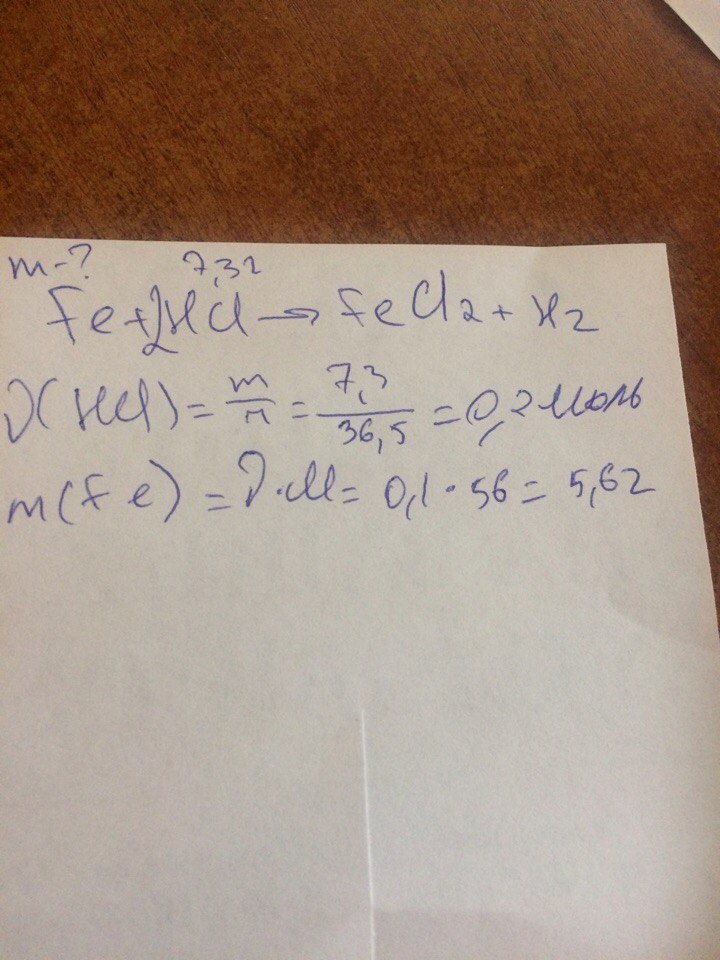 m-? 7,3г
Fe+2HCl → FeCl₂ + H₂
ν(HCl) = m/M = 7,3/36,5 = 0,2 моль
m(Fe) = ν·M = 0,1·56 = 5,6г